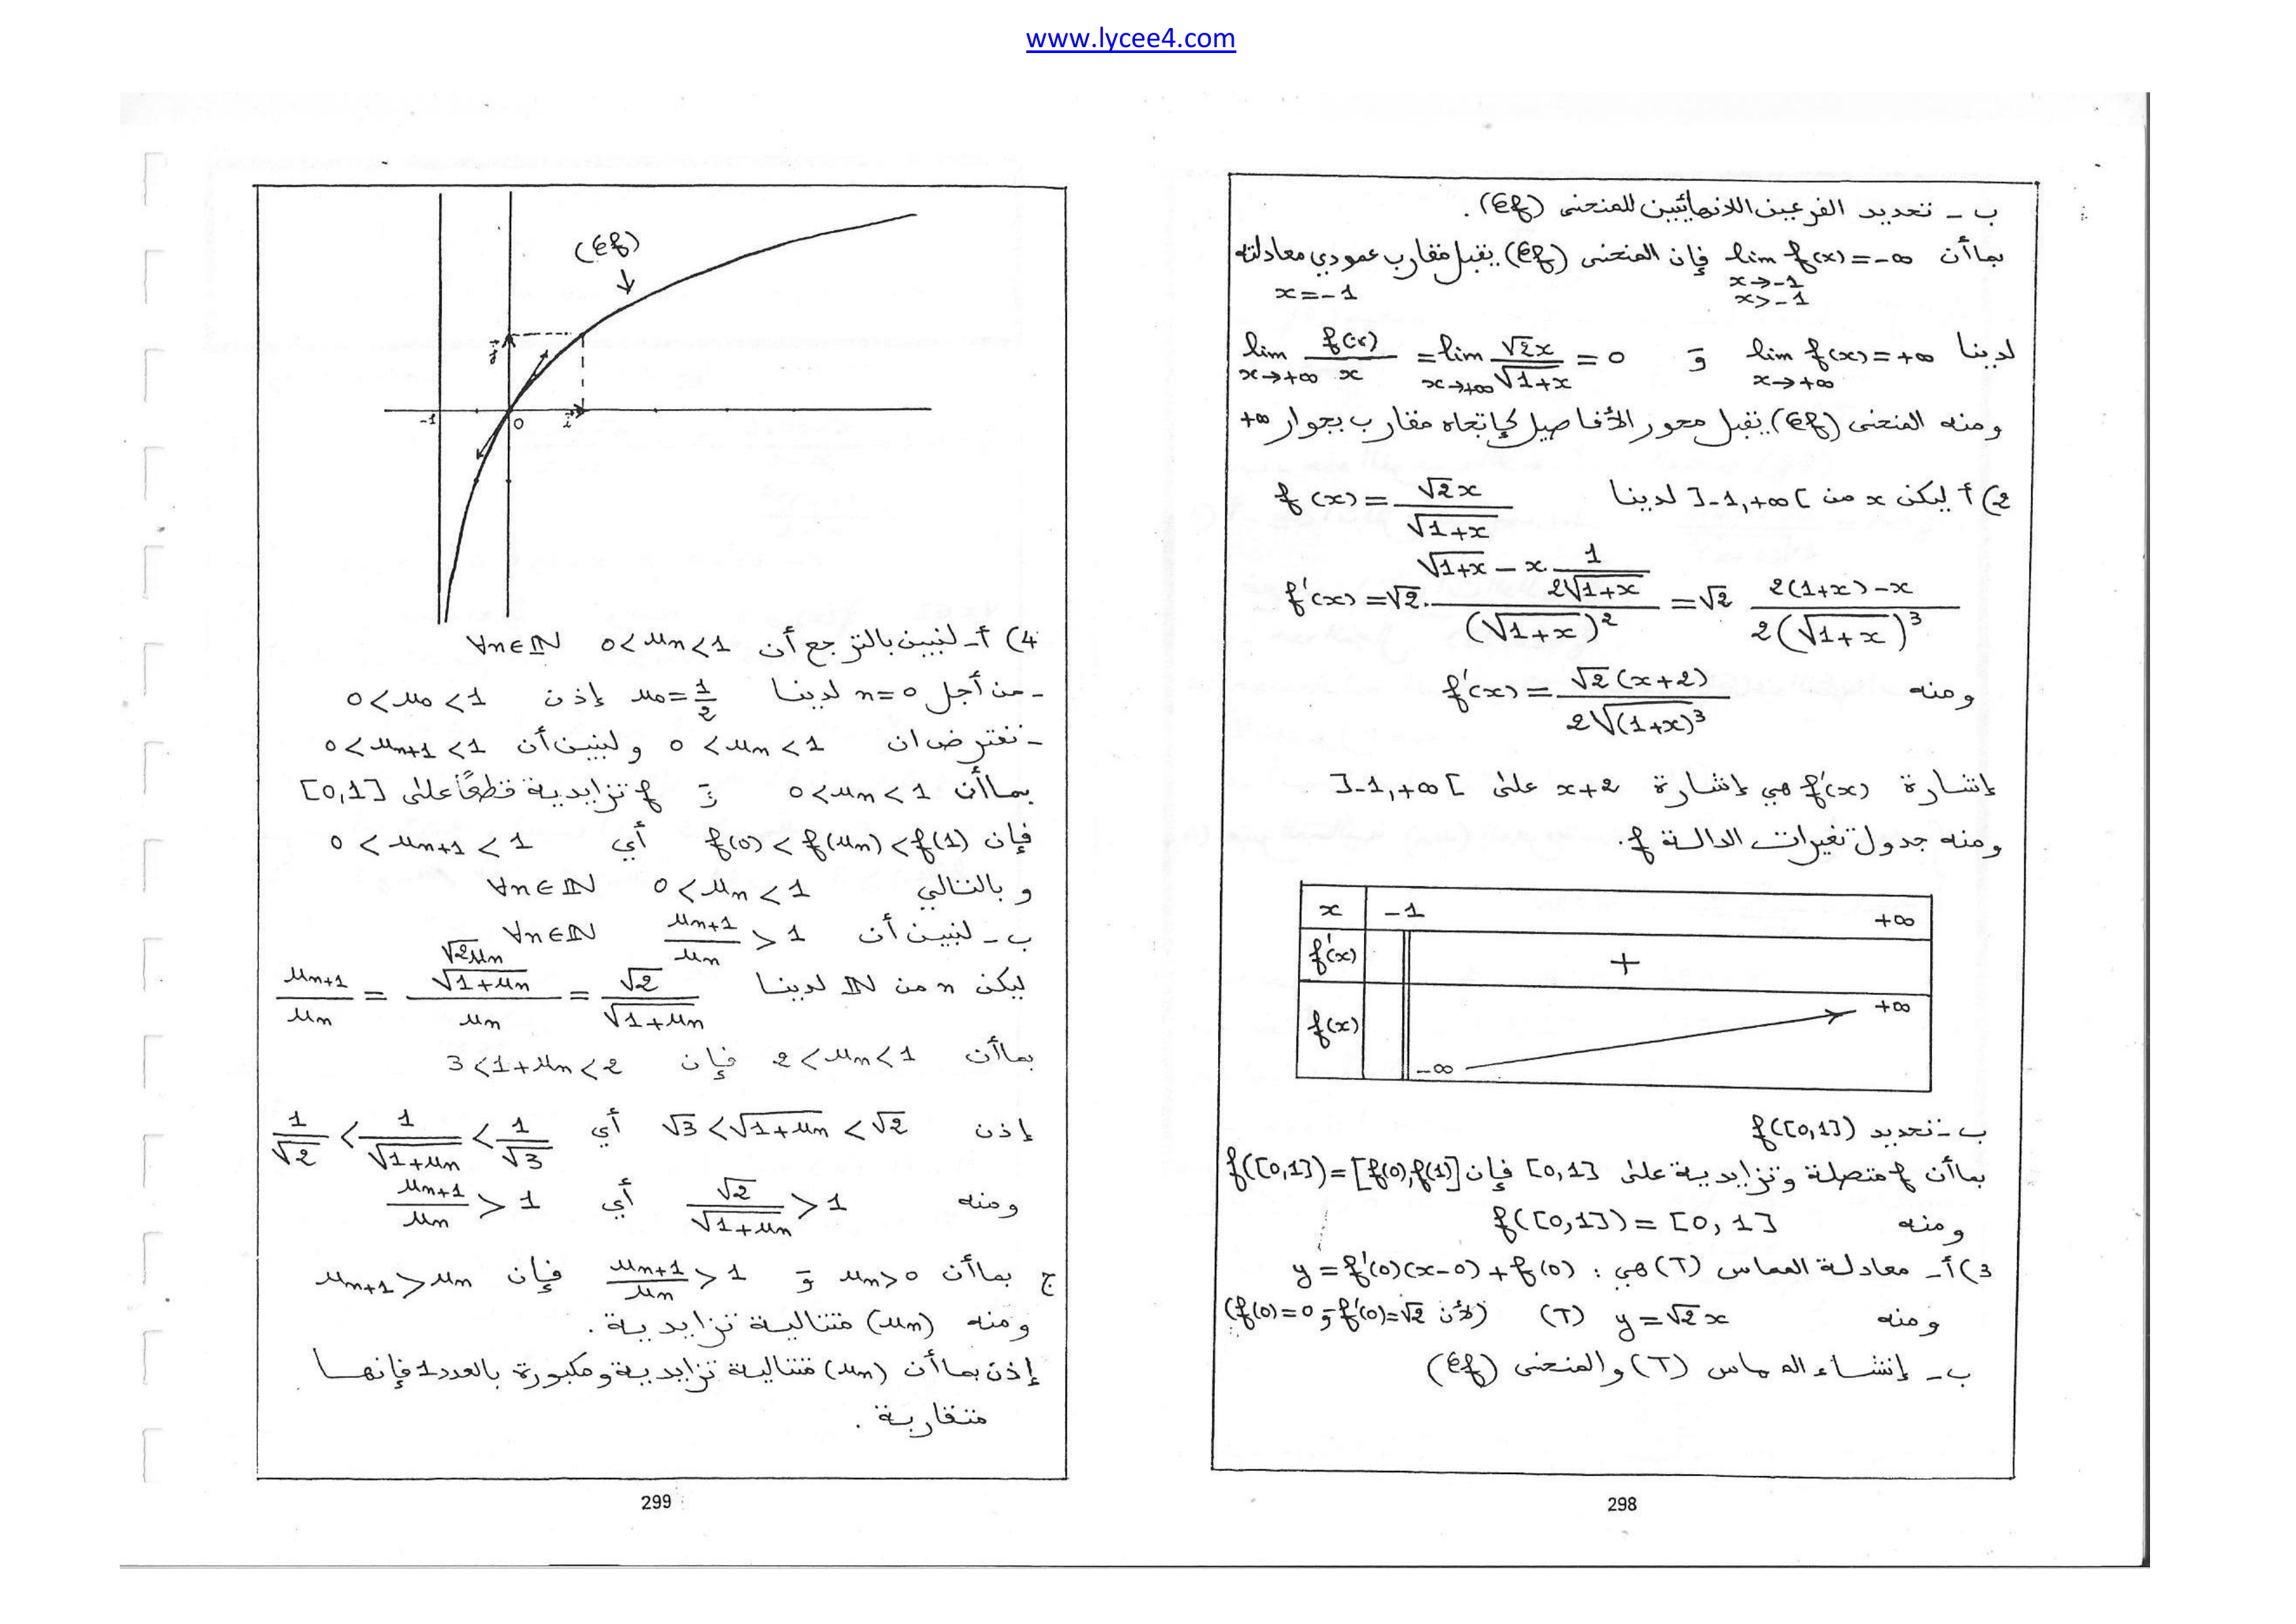 www.lycee4.com
ب ـ تحديد الفرعين اللانهائيين للمنحنى (Cf).
بما أن lim f(x) = -∞ فإن المنحنى (Cf) يقبل مقارب عمودي معادلته
x→-1
x>-1
x = -1
لدينا lim f(x) = +∞ و lim f(x)/x = lim √2x/√1+x = 0
x→+∞ x→+∞ x→+∞
ومنه المنحنى (Cf) يقبل محور الأفاصيل كإتجاه مقارب بجوار +∞
2) أ ليكن x من ]-1,+∞[ لدينا f(x) = √2x/√(1+x)
f'(x) = √2 . (√(1+x) - x . 1/(2√(1+x)))/(√(1+x))² = √2 (2(1+x)-x)/(2(√(1+x))³)
ومنه f'(x) = √2(x+2)/(2√((1+x)³))
إشارة f'(x) هي إشارة x+2 على ]-1,+∞[
ومنه جدول تغيرات الدالة f.
x -1 +∞
f'(x) +
f(x) -∞ +∞
ب ـ تحديد f([0,1])
بما أن f متصلة وتزايدية على [0,1] فإن f([0,1]) = [f(0),f(1)]
ومنه f([0,1]) = [0,1]
3) أ ـ معادلة المماس (T) هي : y = f'(0)(x-0) + f(0)
ومنه y = √2x (T) (لأن f'(0)=√2 و f(0)=0)
ب ـ إنشاء المماس (T) والمنحنى (Cf)
298
(Cf)
j
-1 0 i
4) أ ـ لنبين بالترجع أن 0 < un < 1 ∀n∈ℕ
ـ من أجل n=0 لدينا u0 = 1/2 إذن 0 < u0 < 1
ـ نفترض ان 0 < un < 1 ولنبين أن 0 < un+1 < 1
بما أن 0 < un < 1 و f تزايدية قطعًا على [0,1]
فإن f(0) < f(un) < f(1) أي 0 < un+1 < 1
وبالتالي 0 < un < 1 ∀n∈ℕ
ب ـ لنبين أن un+1/un > 1 ∀n∈ℕ
ليكن n من ℕ لدينا un+1/un = (√2un/√(1+un))/un = √2/√(1+un)
بما أن 2 < un < 1 فإن 3 < 1+un < 2
إذن √3 < √(1+un) < √2 أي 1/√2 < 1/√(1+un) < 1/√3
ومنه √2/√(1+un) > 1 أي un+1/un > 1
ج بما أن un > 0 و un+1/un > 1 فإن un+1 > un
ومنه (un) متتالية تزايدية .
إذن بما أن (un) متتالية تزايدية ومكبورة بالعدد 1 فإنها
متقاربة .
299